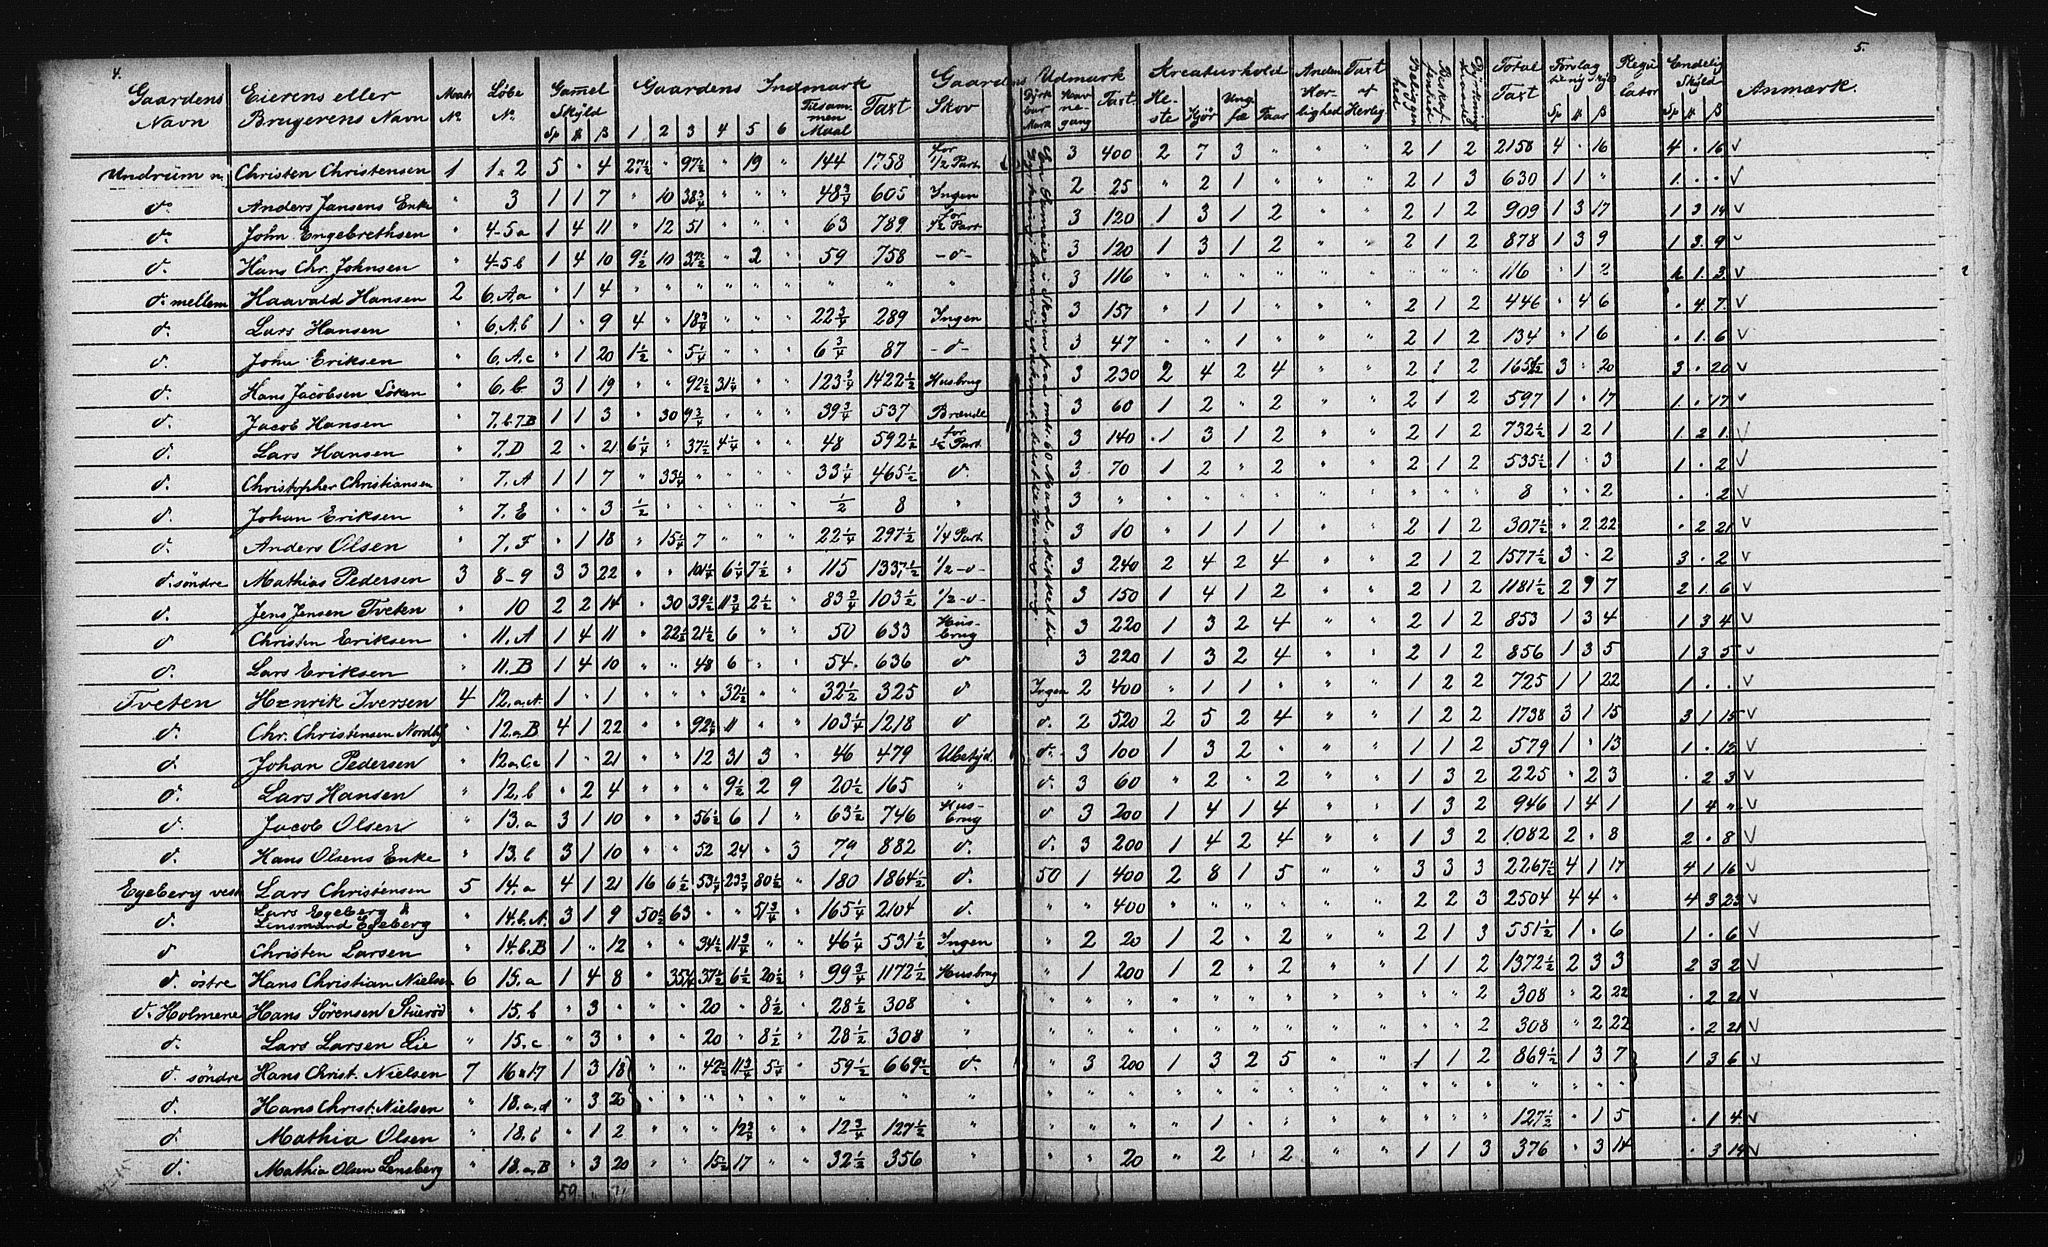 4.
5.
Gaardens Navn | Eierens eller Brugerens Navn | Matr. Nº | Løbe Nº | Gamel Skyld Sp # β | Gaardens Indmark 1 2 3 4 5 6 Tilsammen Maal Taxt | Gaardens Skov | Udmark Dyrkbar Mark Havnegang Taxt | Kreaturhold Heste Kjør Ungfæ Faar | Anden Herlighed | Taxt af Herlig | Total Taxt | Forslag til ny Skyld Sp # β | Regulator | Endelig Skyld Sp # β | Anmærk.
Undrum n. Christen Christensen 1 1 2 5 " 4 27½ " 97½ " 19 " 144 1758 for ½ Part 3 400 2 7 3 " " " 2 1 2 2158 4 " 16 4 " 16 V
d. Anders Jansens Enke " 3 1 1 7 " 10 38¾ " " " 48¾ 605 Ingen 2 25 " 2 1 " " " 2 1 3 630 1 1 " 1 " " V
d. John Engebrethsen " 4-5a 1 4 11 " 12 51 " " " 63 789 for ½ Part 3 120 1 3 1 2 " " 2 1 2 909 1 3 17 1 3 14 V
d. Hans Chr. Johnsen " 4-5b 1 4 10 9½ 10 37½ " 2 " 59 758 -d- 3 120 1 3 1 2 " " 2 1 2 878 1 3 9 1 3 9 V
d. mellem Haavald Hansen 2 6.A.a " 1 4 " " " " " " " " " 3 116 " " " " " " " " " 116 " 1 2 1 3 V
d. Lars Hansen " 6.A.b 1 " 9 4 " 18¾ " " " 22¾ 289 Ingen 3 157 " 1 1 " " " 2 1 2 446 " 4 6 " 4 7 V
d. John Eriksen " 6.A.c " 1 20 1½ " 5¼ " " " 6¾ 87 -d- 3 47 " " 1 " " " 2 1 2 134 " 1 6 " 1 6 V
d. Hans Jacobsen " 6.b. 3 1 19 " " 92½ 31¼ " " 123¾ 1422½ Husbrug 3 230 2 4 2 4 " " 2 1 2 1652½ 3 " 20 3 " 20 V
d. Jacob Hansen " 7.b.7.B 1 1 3 " 30 9¾ " " " 39¾ 537 Brænde 3 60 1 2 " 2 " " 2 1 2 597 1 " 17 1 " 17 V
d. Lars Hansen " 7.D 2 " 21 6¼ " 37½ 4¼ " " 48 592½ for ½ Part 3 140 1 3 1 2 " " 2 1 2 732½ 1 2 1 1 2 1 V
d. Christopher Christiansen " 7.A 1 1 7 " 33¼ " " " " 33¼ 465½ d. 3 70 1 2 " 2 " " 2 1 2 535½ 1 " 3 1 " 2 V
d. Johan Eriksen " 7.E " " 3 ½ " " " " " ½ 8 " 3 " " " " " " " " " " 8 " " 2 " " 2 V
d. Anders Olsen " 7.F " 1 18 " 15¼ 7 " " " 22¼ 297½ ¼ Part 3 10 " 1 1 1 " " 2 1 2 307½ " 2 22 " 2 21 V
d. søndre Mathias Pedersen 3 8-9 3 3 22 " " 101¼ 6¼ 7½ " 115 1337½ ½-d- 3 240 2 4 2 4 " " 2 1 2 1577½ 3 " 2 3 " 2 V
d. Jens Jensen Tveten " 10 2 2 14 " 30 39½ 11¾ 2½ " 83¾ 103½ ½-d- 3 150 1 4 1 2 " " 2 1 2 1181½ 2 9 7 2 1 6 V
d Christen Eriksen " 11.A 1 4 11 " 22½ 21½ 6 " " 50 633 Husbrug 3 220 1 3 2 4 " " 2 1 2 853 1 3 4 1 3 4 V
d. Lars Eriksen " 11.B 1 4 10 " " 48 6 " " 54 636 d 3 220 1 3 2 4 " " 2 1 2 856 1 3 5 1 3 5 V
Tveten Henrik Iversen 4 12.a.A 1 " 1 " " " 32½ " " 32½ 325 d Ingen 2 400 " 1 1 " " " 1 2 2 725 1 1 22 1 " " V
d. Chr. Christensen Nordby " 12.a.B 4 1 22 " " 92¼ 11 " " 103¼ 1218 d d. 2 520 2 5 2 4 " " 1 2 2 1738 3 1 15 3 1 15 V
d. Johan Pedersen " 12.a.C.c 1 " 21 " " 12 31 3 " 46 479 Ubetyd. d. 3 100 1 3 2 " " " 1 1 2 579 1 " 13 1 " 13 V
d. Lars Hansen " 12.b " 2 4 " " " 9½ 2 9 20½ 165 " d. 3 60 " 2 " 2 " " 1 3 2 225 " 2 3 " 2 3 V
d. Jacob Olsen " 13.a 3 1 10 " " 56½ 6 1 " 63½ 746 Husbrug d 3 200 1 4 1 4 " " 1 3 2 946 1 4 1 1 4 " V
d. Hans Olsens Enke " 13.b 3 1 10 " " 52 24 " 3 79 882 d. d. 3 200 1 4 2 4 " " 1 3 2 1082 2 " 8 2 " 8 V
Egeberg vest Lars Christensen 5 14.a 4 1 21 16 6½ 53¼ 23¾ 80½ " 180 1864½ d. 50 1 400 2 8 1 5 " " 3 3 3 2267½ 4 1 17 4 1 16 V
d. Lars Egeberg & Lensmand Egeberg " 14.b.A. 3 1 9 50½ 63 " " 51¾ " 165¼ 2104 d. " " 400 " " " " " " 2 2 3 2504 4 4 " 4 3 23 V
d Christen Larsen " 14.b.B 1 " 12 " " 34½ 11¾ " " 46¼ 531½ Ingen " 2 20 1 2 " 2 " " 2 1 3 551½ 1 " 6 1 " 6 V
d. østre Hans Christian Nielsen 6 15.a 1 4 8 " 35¼ 37½ 6½ 20½ " 99¾ 1172½ Husbrug " 1 200 1 2 " 2 " " 1 1 2 1372½ 2 3 3 2 3 2 V
d. Holmene Hans Sørensen Stuerød " 15.b " 3 " " " 20 " 8½ " 28½ 308 " " " " " " " " " " " " 2 308 " 2 22 " 2 21 V
d. Lars Larsen Lie " 15.c " 3 " " " 20 " 8½ " 28½ 308 " " " " " " " " " " " " 2 308 " 2 22 " 2 21 V
d. søndre Hans Christ. Nielsen 7 16 17 1 3 18 " " 42½ 11¾ 5¼ " 59½ 669½ d. " 3 200 1 3 2 5 " " 1 1 2 869½ 1 3 7 1 3 6 V
d. Hans Christ. Nielsen " 18.a.d " 3 20 " " " " " " " " " " " " " " " " " " " " " " " " "
d. Mathia Olsen " 18.b " 1 2 " " " 12¾ " " 12¾ 127½ " " " " " 1 " " " " " " " 127½ " 1 5 " 1 4 V
d. Mathia Olsen Lensberg " 18.a.B " 3 20 " " 15½ 17 " " 32½ 356 " " " 20 " 2 " 2 " " 1 1 3 376 " 3 14 " 3 14 V
59